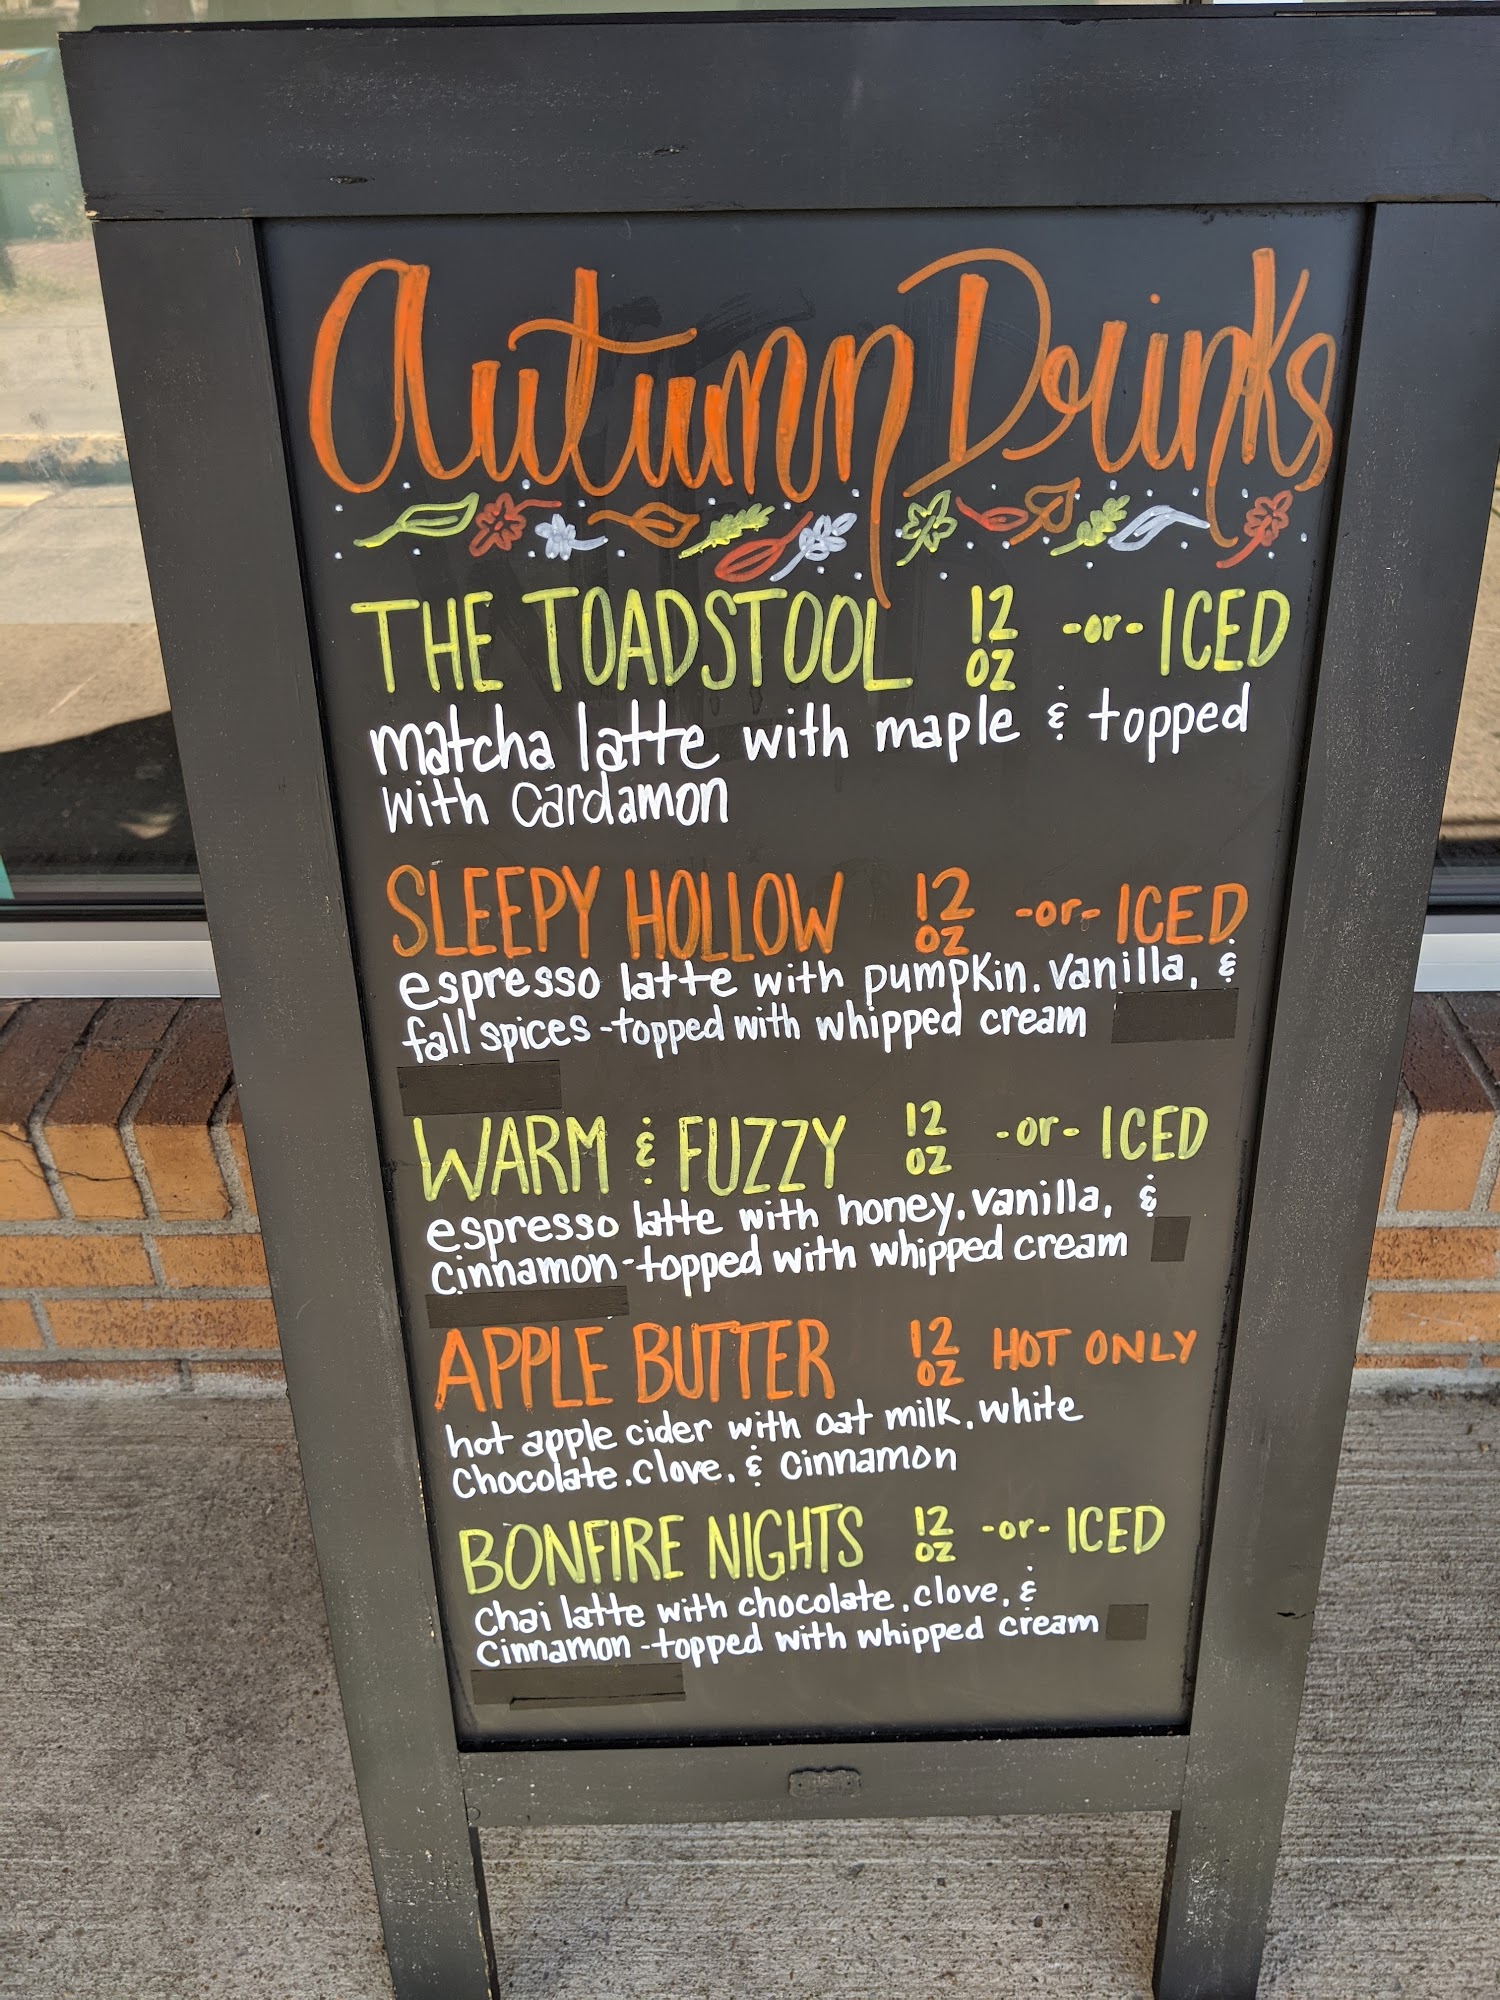 Autumn Drinks
THE TOADSTOOL 12 OZ -or- ICED
matcha latte with maple & topped
with cardamon
SLEEPY HOLLOW 12 OZ -or- ICED
espresso latte with pumpkin, vanilla, &
fall spices - topped with whipped cream
WARM & FUZZY 12 OZ -or- ICED
espresso latte with honey, vanilla, &
cinnamon - topped with whipped cream
APPLE BUTTER 12 OZ HOT ONLY
hot apple cider with oat milk, white
chocolate, clove, & cinnamon
BONFIRE NIGHTS 12 OZ -or- ICED
chai latte with chocolate, clove, &
cinnamon - topped with whipped cream